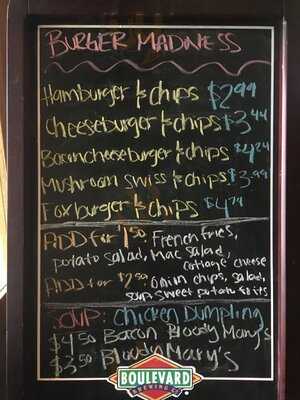 BURGER MADNESS
Hamburger & chips $2.99
Cheeseburger & chips $3.44
Baconcheeseburger & chips $4.24
Mushroom Swiss & chips $3.99
Foxburger & chips $4.79
ADD for $1.50: French fries,
potato salad, Mac salad,
cottage cheese
ADD for $2.50: Onion chips, salad,
soup, sweet potato fries
SOUP: Chicken Dumpling
$4.50 Bacon Bloody Mary's
$3.50 Bloody Mary's
BOULEVARD
BREWING CO.